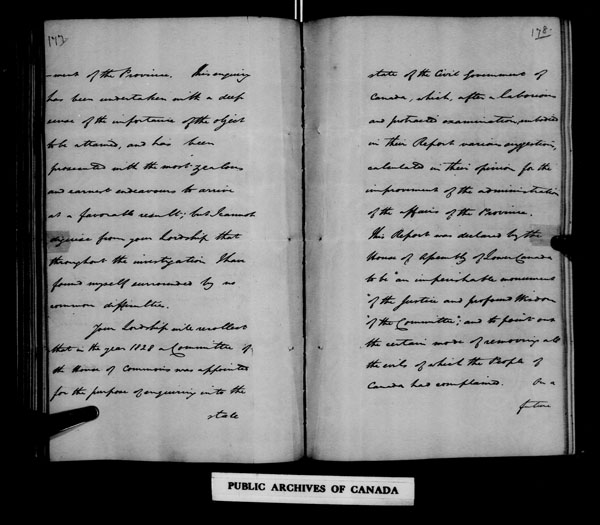 177.
-ment of the Province. This enquiry
has been undertaken with a deep
sense of the importance of the object
to be attained, and has been
prosecuted with the most zealous
and earnest endeavours to arrive
at a favorable result; but I cannot
disguise from your Lordship that
throughout the investigation I have
found myself surrounded by no
common difficulties.
Your Lordship will recollect
that in the year 1828 a Committee of
the House of Commons was appointed
for the purpose of enquiring into the
state
178.
state of the Civil Government of
Canada, which, after a laborious
and protracted examination, embodied
in their Report various suggestions,
calculated in their opinion for the
improvement of the administration
of the affairs of the Province.
This Report was declared by the
House of Assembly of Lower Canada
to be "an imperishable monument
"of the Justice and profound Wisdom
"of the Committee"; and to point out
the certain mode of removing all
the evils of which the People of
Canada had complained. On a
future
PUBLIC ARCHIVES OF CANADA